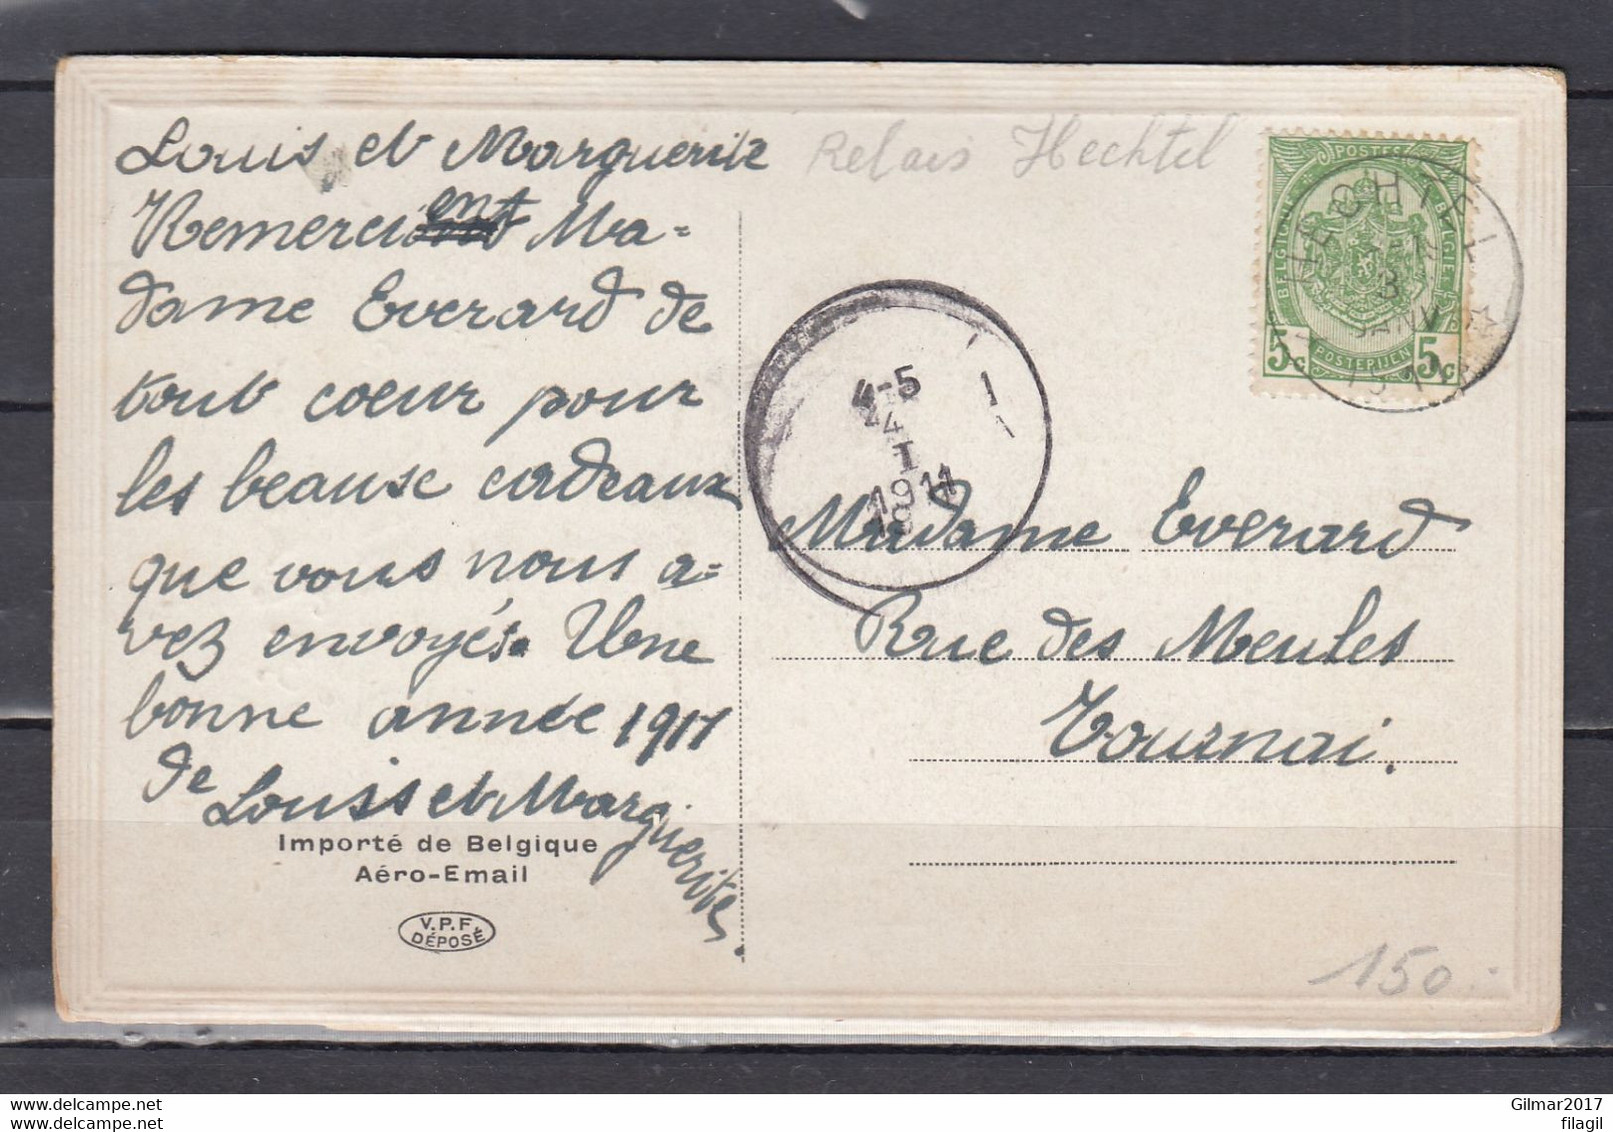 Louis et Marguerite
Remercient Ma-
dame Everard de
tout coeur pour
les beause cadeaux
que vous nous a-
vez envoyés. Une
bonne année 1911
de Louis et Marguerite.
Importé de Belgique
Aéro-Email
V.P.F.
DÉPOSÉ
Relais Hechtel
POSTES
BELGIQUE BELGIE
POSTERIJEN
5c 5c
HECHTEL
3
JANV
4-5
I
1911
Madame Everard
Rue des Meules
Tournai.
150
everystockphoto © Belgium stamps & postcards
Gilmar2017
filagil